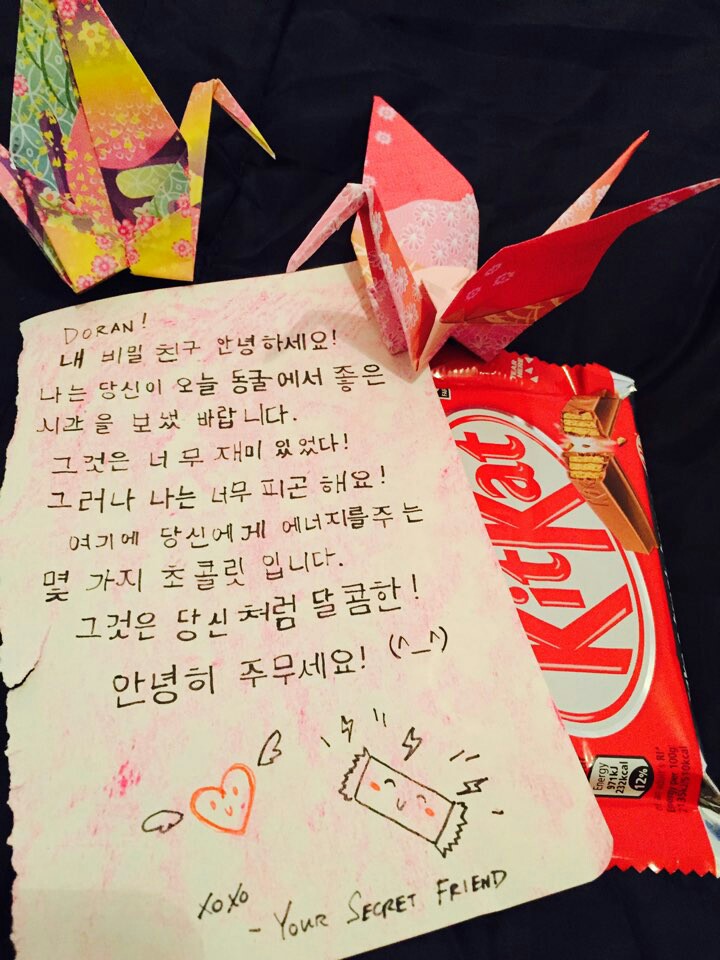 DORAN!
내 비밀 친구 안녕하세요!
나는 당신이 오늘 동굴에서 좋은
시간을 보냈 바랍니다.
그것은 너무 재미 있었다!
그러나 나는 너무 피곤 해요!
여기에 당신에게 에너지를주는
몇 가지 초콜릿 입니다.
그것은 당신 처럼 달콤한!
안녕히 주무세요! (^_^)
XOXO
- YOUR SECRET FRIEND
KitKat
Energy
971kJ
232kcal
12%